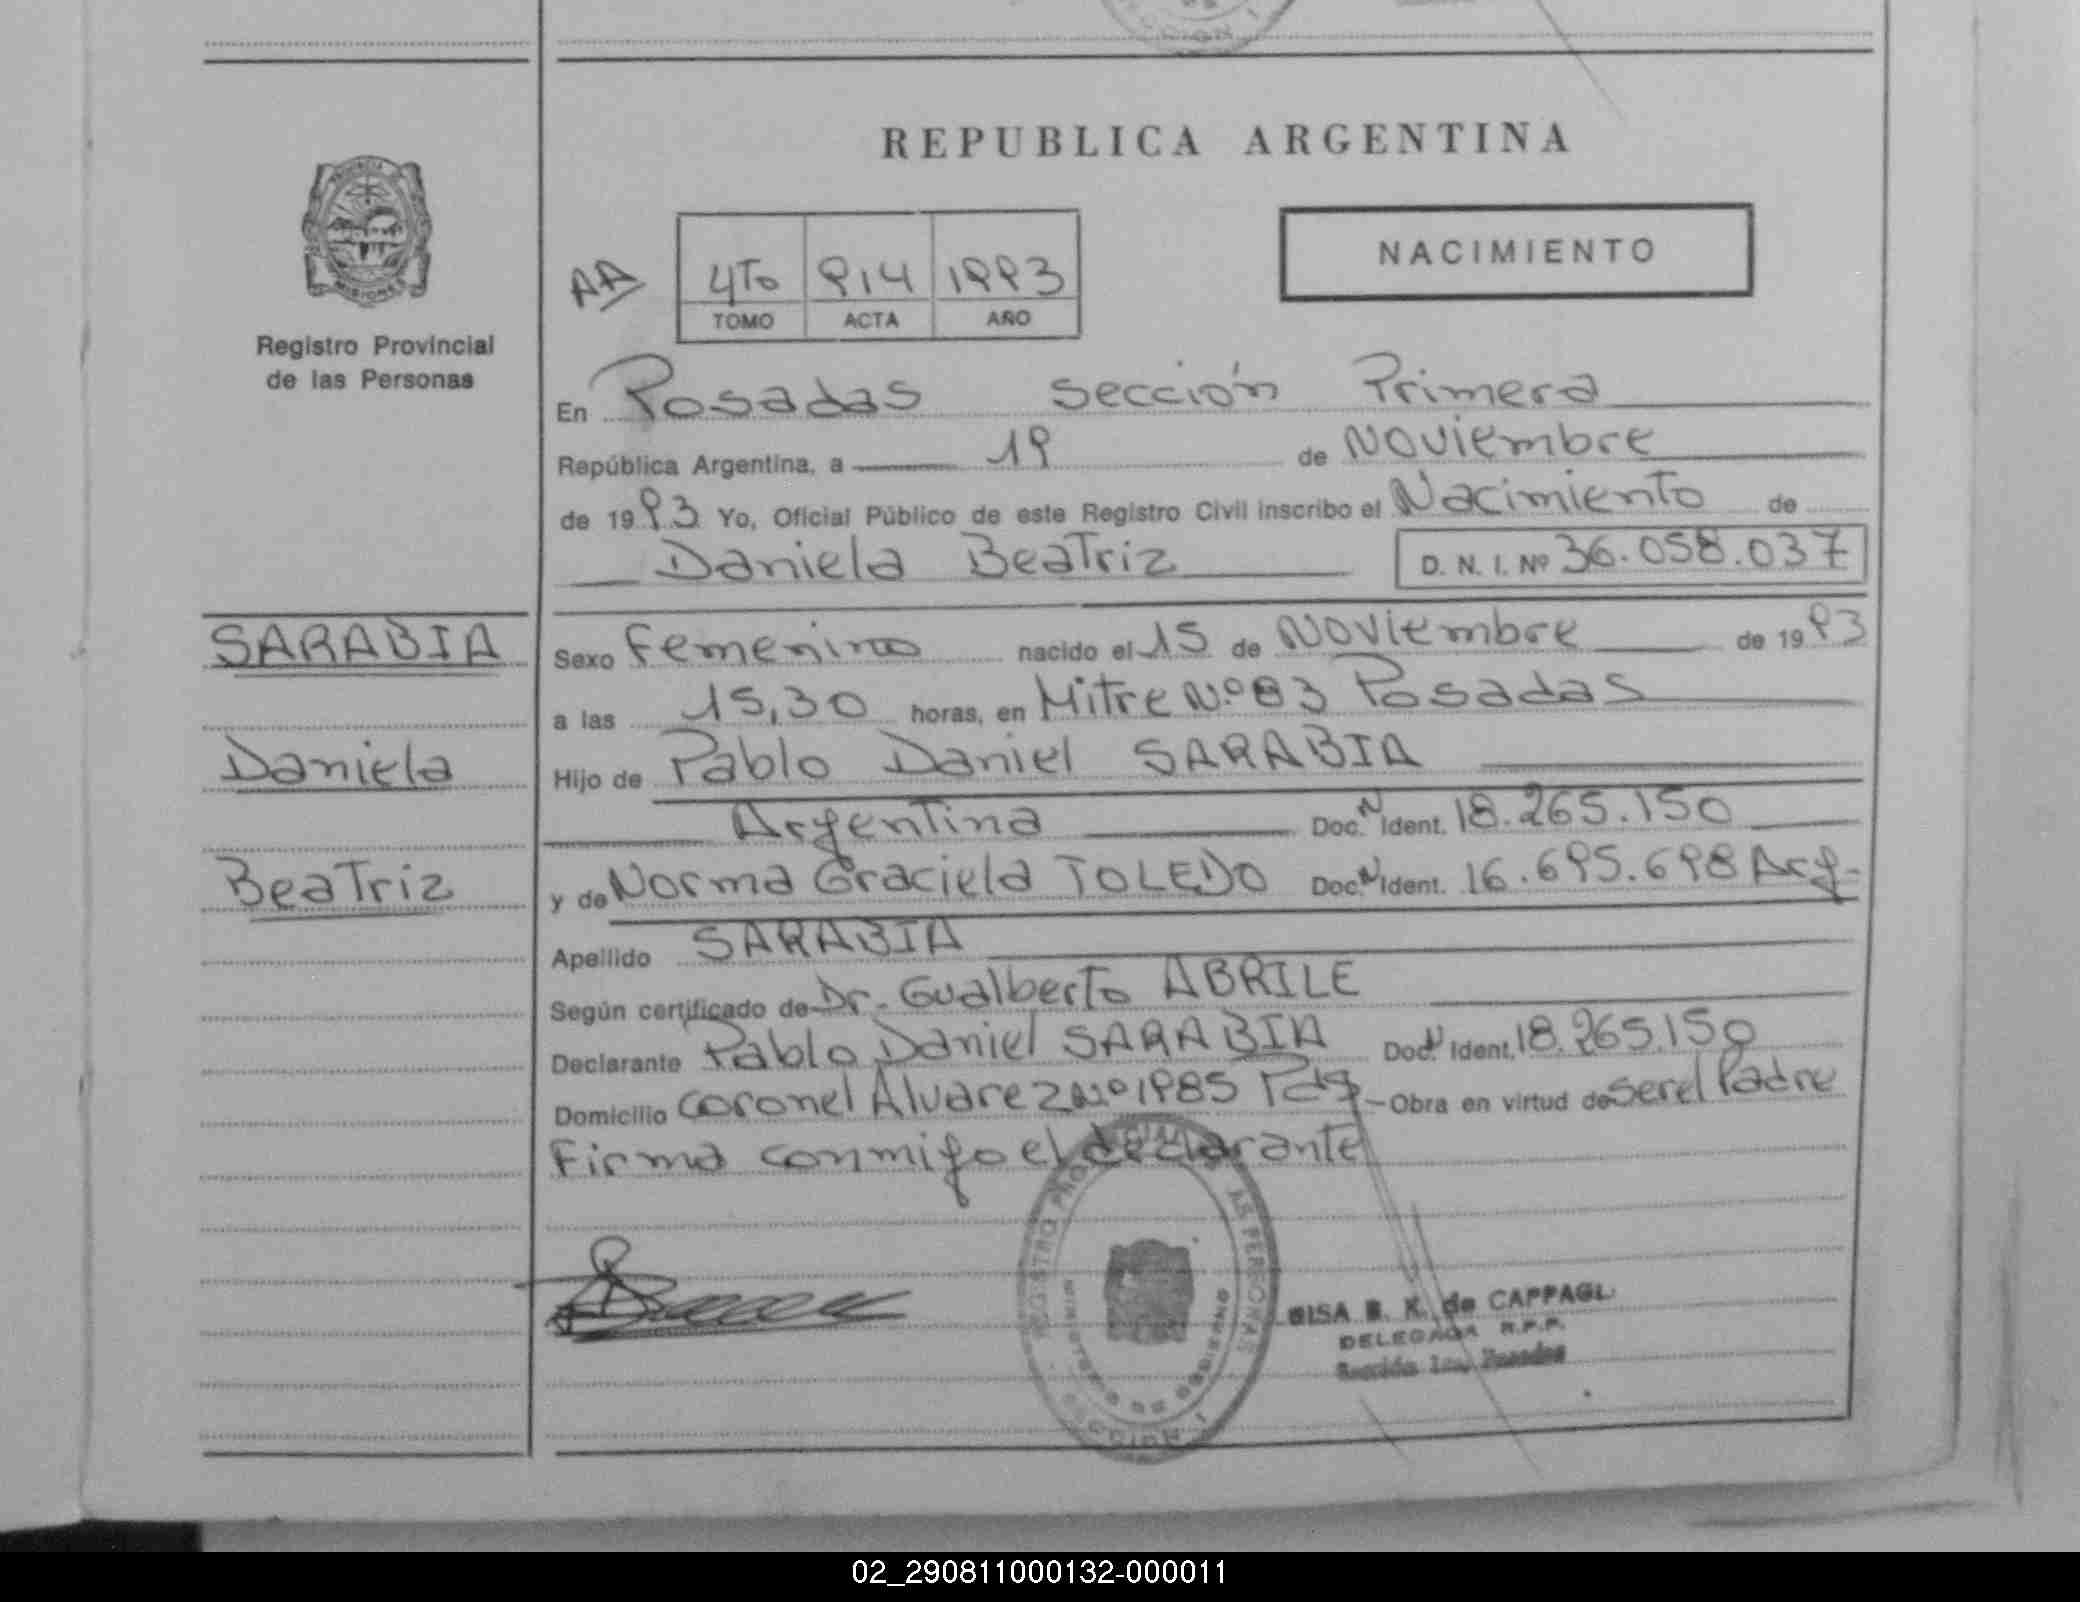 REPUBLICA ARGENTINA
NACIMIENTO
PROVINCIA DE
MISIONES
Registro Provincial
de las Personas
AA
4To 914 1993
TOMO ACTA AÑO
En Posadas sección Primera
República Argentina, a 19 de Noviembre
de 1993 Yo, Oficial Público de este Registro Civil inscribo el Nacimiento de
Daniela Beatriz D. N. I. Nº 36.058.037
SARABIA
Daniela
Beatriz
Sexo Femenino nacido el 15 de Noviembre de 1993
a las 15,30 horas, en Mitre Nº 83 Posadas
Hijo de Pablo Daniel SARABIA
Argentina Doc. N Ident. 18.265.150
y de Norma Graciela TOLEDO Doc. N Ident. 16.695.698 Arg.
Apellido SARABIA
Según certificado de Dr. Gualberto ABRILE
Declarante Pablo Daniel SARABIA Doc. N Ident. 18.265.150
Domicilio Coronel Alvarez Nº 1985 Pds - Obra en virtud de ser el Padre
Firma conmigo el declarante
REGISTRO PROVINCIAL DE LAS PERSONAS
MINISTERIO DE GOBIERNO
SECCION 1
B. K. de CAPPAGL
DELEGADA R.P.P.
Sección 1ra, Posadas
02_290811000132-000011